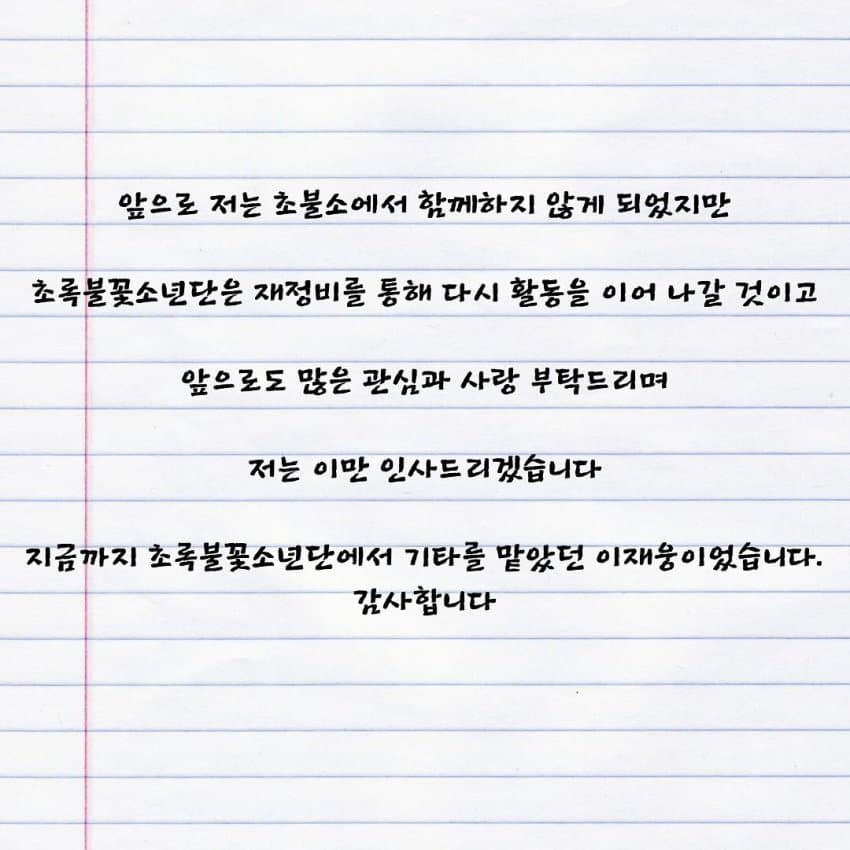 앞으로 저는 초불소에서 함께하지 않게 되었지만
초록불꽃소년단은 재정비를 통해 다시 활동을 이어 나갈 것이고
앞으로도 많은 관심과 사랑 부탁드리며
저는 이만 인사드리겠습니다
지금까지 초록불꽃소년단에서 기타를 맡았던 이재웅이었습니다.
감사합니다